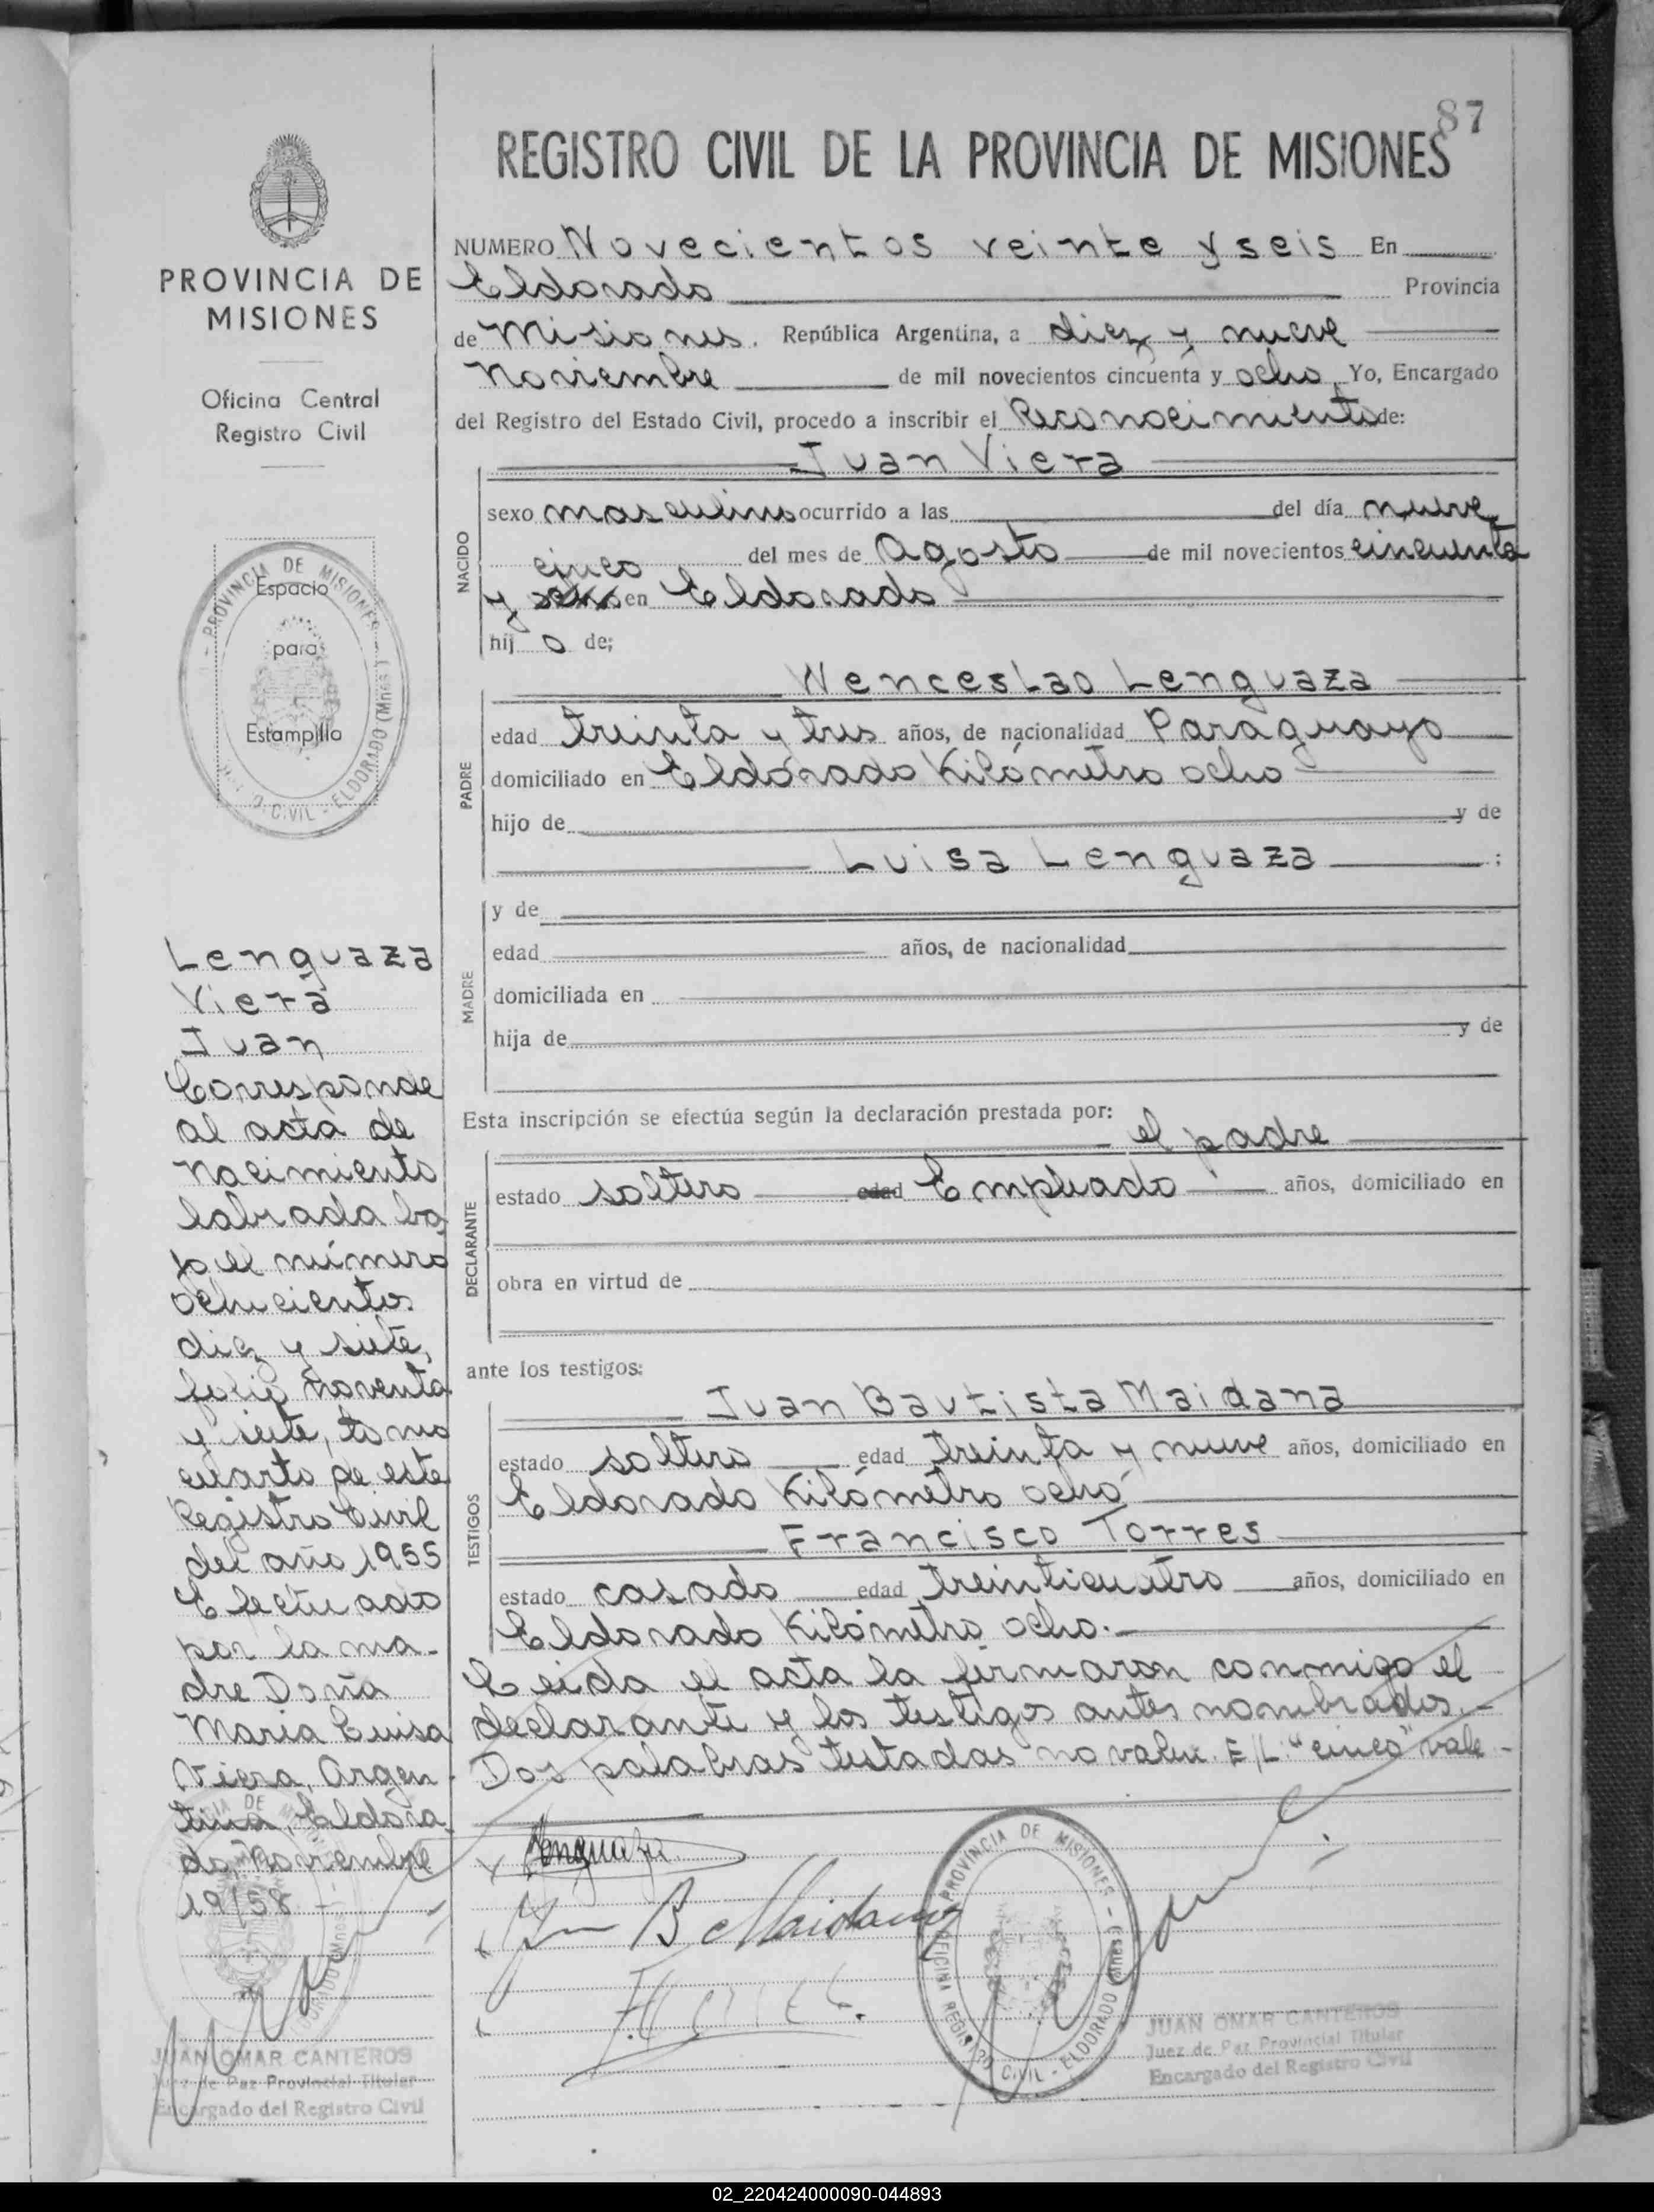 87
REGISTRO CIVIL DE LA PROVINCIA DE MISIONES
PROVINCIA DE
MISIONES
Oficina Central
Registro Civil
PROVINCIA DE MISIONES
Espacio
para
Estampilla
CIVIL - ELDORADO (Mnes)
NUMERO Novecientos veinte y seis En
Eldorado Provincia
de Misiones. República Argentina, a diez y nueve
Noviembre de mil novecientos cincuenta y ocho, Yo, Encargado
del Registro del Estado Civil, procedo a inscribir el Reconocimiento de:
NACIDO
Juan Viera
sexo masculino ocurrido a las del día nueve
del mes de Agosto de mil novecientos cincuenta
cinco
y en Eldorado
hij o de;
PADRE
Wenceslao Lenguaza
edad treinta y tres años, de nacionalidad Paraguayo
domiciliado en Eldorado Kilómetro ocho
hijo de y de
Luisa Lenguaza ;
MADRE
y de
edad años, de nacionalidad
domiciliada en
hija de y de
Esta inscripción se efectúa según la declaración prestada por: el padre
DECLARANTE
estado soltero edad Empleado años, domiciliado en
obra en virtud de
ante los testigos:
TESTIGOS
Juan Bautista Maidana
estado soltero edad treinta y nueve años, domiciliado en
Eldorado Kilómetro ocho
Francisco Torres
estado casado edad treinticuatro años, domiciliado en
Eldorado Kilómetro ocho.-
Leida el acta la firmaron conmigo el
declarante y los testigos antes nombrados.-
Dos palabras testadas no valen. E/L. "cinco" vale-
Lenguaza
Juan B Maidana
PROVINCIA DE MISIONES
OFICINA REGISTRO CIVIL - ELDORADO (Mnes)
JUAN OMAR CANTEROS
Juez de Paz Provincial Titular
Encargado del Registro Civil
Lenguaza
Viera
Juan
Corresponde
al acta de
Nacimiento
labrada ba
jo el número
ochocientos
diez y siete,
folio noventa
y siete, tomo
cuarto de este
Registro Civil
del año 1955
Efectuado
por la ma-
dre Doña
Maria Luisa
Viera, Argen-
tina, Eldora
do, Noviembre
19/58
JUAN OMAR CANTEROS
Juez de Paz Provincial Titular
Encargado del Registro Civil
02_220424000090-044893